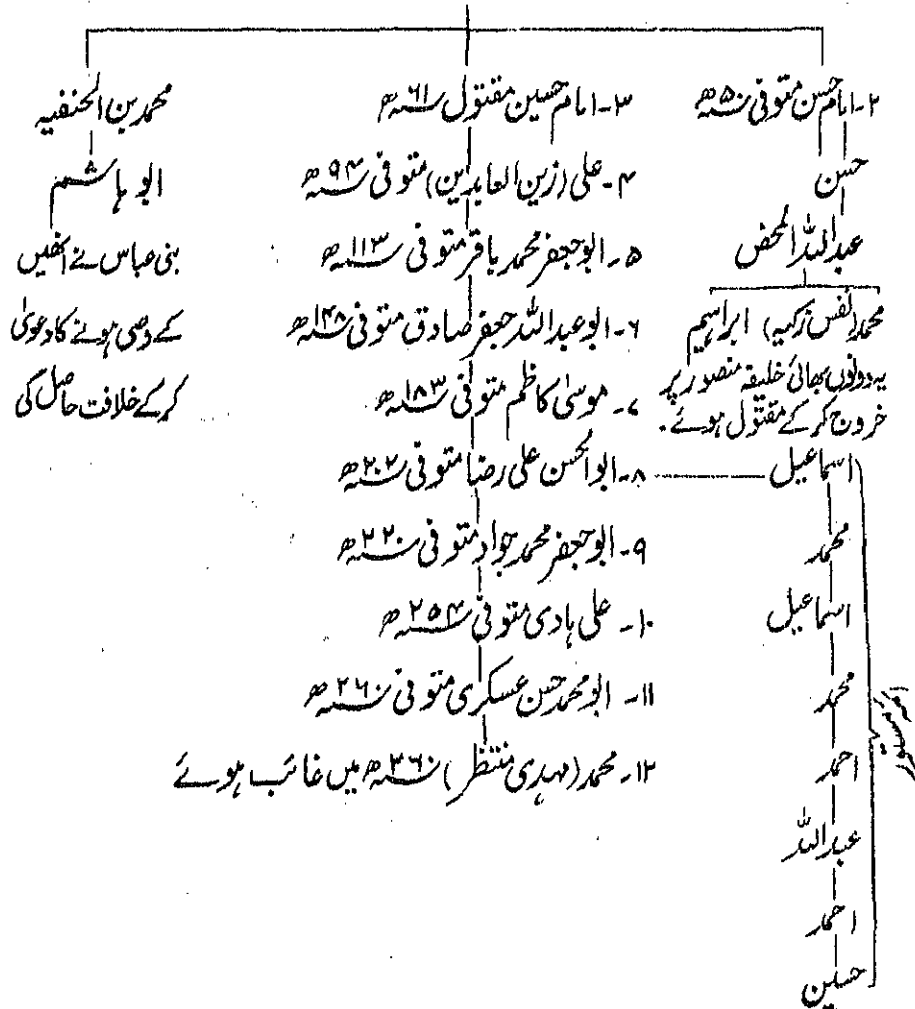 ۲-امام حسن متوفی ۵۰ھ
حسن
عبداللہ المحض
محمد (نفس زکیہ) ابراہیم
یہ دونوں بھائی خلیفہ منصور پر
خروج کر کے مقتول ہوئے۔
۳-امام حسین مقتول ۶۱ھ
۴-علی (زین العابدین) متوفی ۹۴ھ
۵-ابوجعفر محمد باقر متوفی ۱۱۳ھ
۶-ابو عبداللہ جعفر صادق متوفی ۱۴۸ھ
۷-موسیٰ کاظم متوفی ۱۸۳ھ
۸-ابوالحسن علی رضا متوفی ۲۰۲ھ
۹-ابوجعفر محمد جواد متوفی ۲۲۰ھ
۱۰-علی ہادی متوفی ۲۵۴ھ
۱۱-ابو محمد حسن عسکری متوفی ۲۶۰ھ
۱۲-محمد (مہدی منتظر) ۲۶۰ھ میں غائب ہوئے
محمد بن الحنفیہ
ابو ہاشم
بنی عباس نے انھیں
کے وصی ہونے کا دعویٰ
کر کے خلافت حاصل کی
اسماعیل
محمد
اسماعیل
محمد
احمد
عبداللہ
احمد
حسین